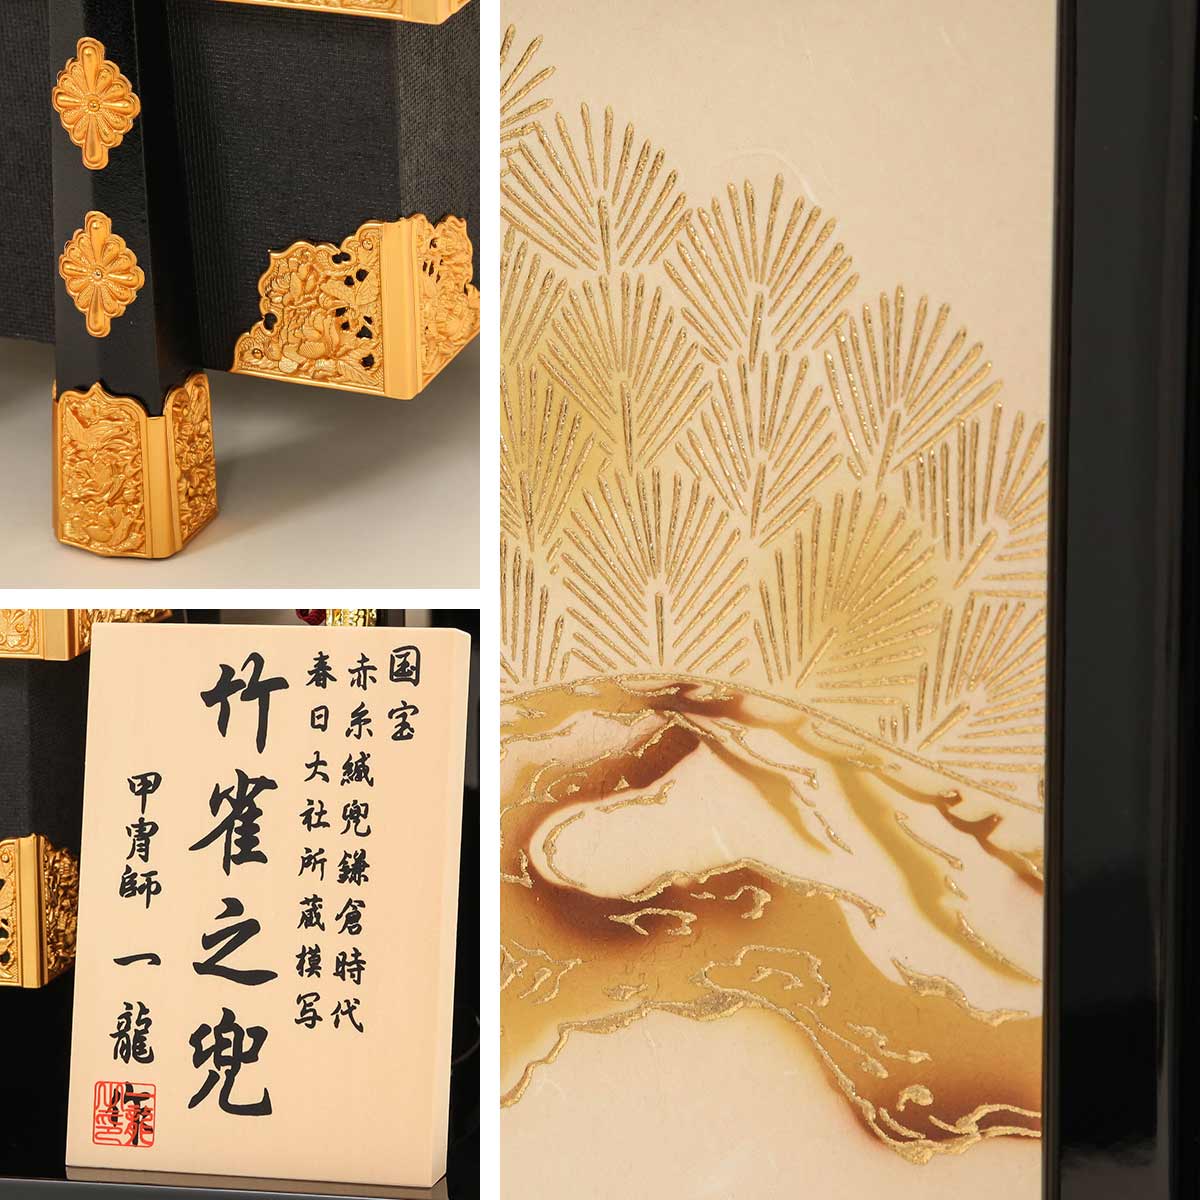 国宝
赤糸縅兜鎌倉時代
春日大社所蔵模写
竹雀之兜
甲冑師 一龍作